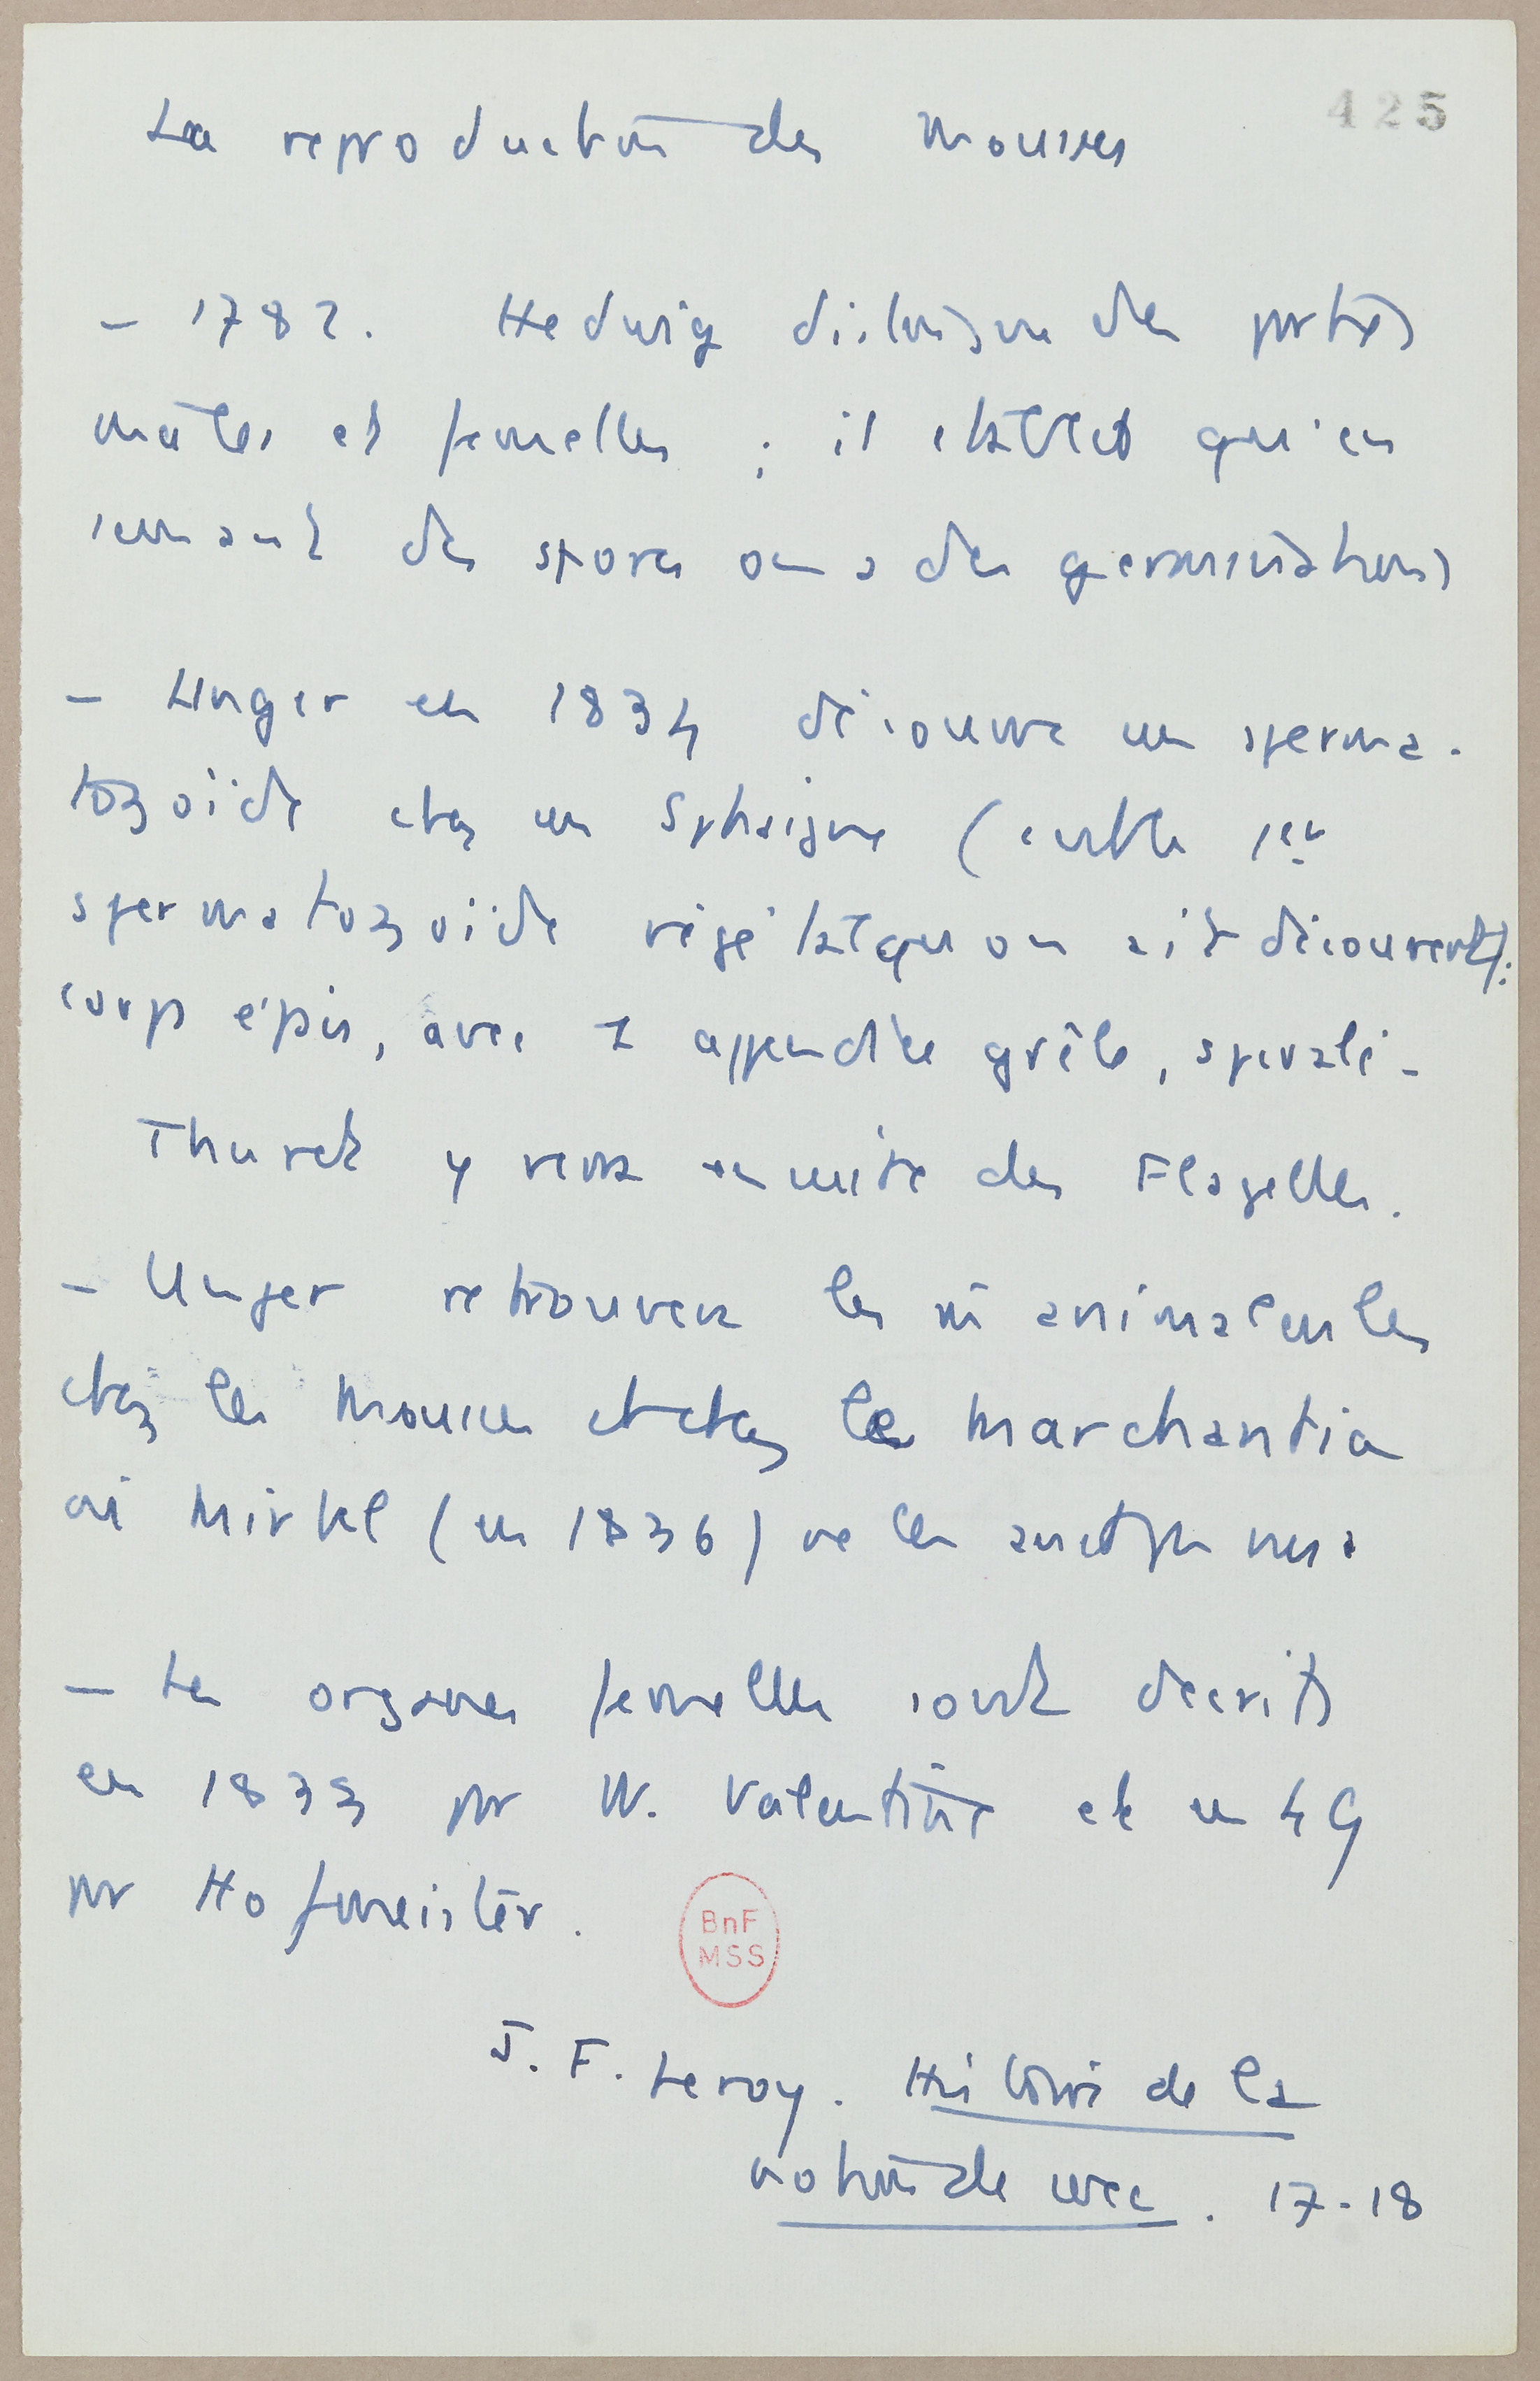 425
La reproduction des mousses
- 1782. Hedwig distingue des parties
mâles et femelles ; il établit qu'en
semant des spores on a des germinations
- Unger en 1834 découvre un sperma-
tozoïde chez un Sphaigne (
spermatozoïde végétal qu'on ait découvert) :
corps épais, avec 1 appendice grêle, spiralé -
Thuret y verra ensuite des Flagelles.
- Unger retrouvera les m̂ animalcules
chez les Mousses et chez le Marchantia
où Mirbel (en 1836) ne les
- Les organes femelles sont décrits
en 1833 par W. Valentine et en 49
par Hofmeister.
BnF
MSS
J. F. Leroy. Histoire de la
notion de sexe. 17-18